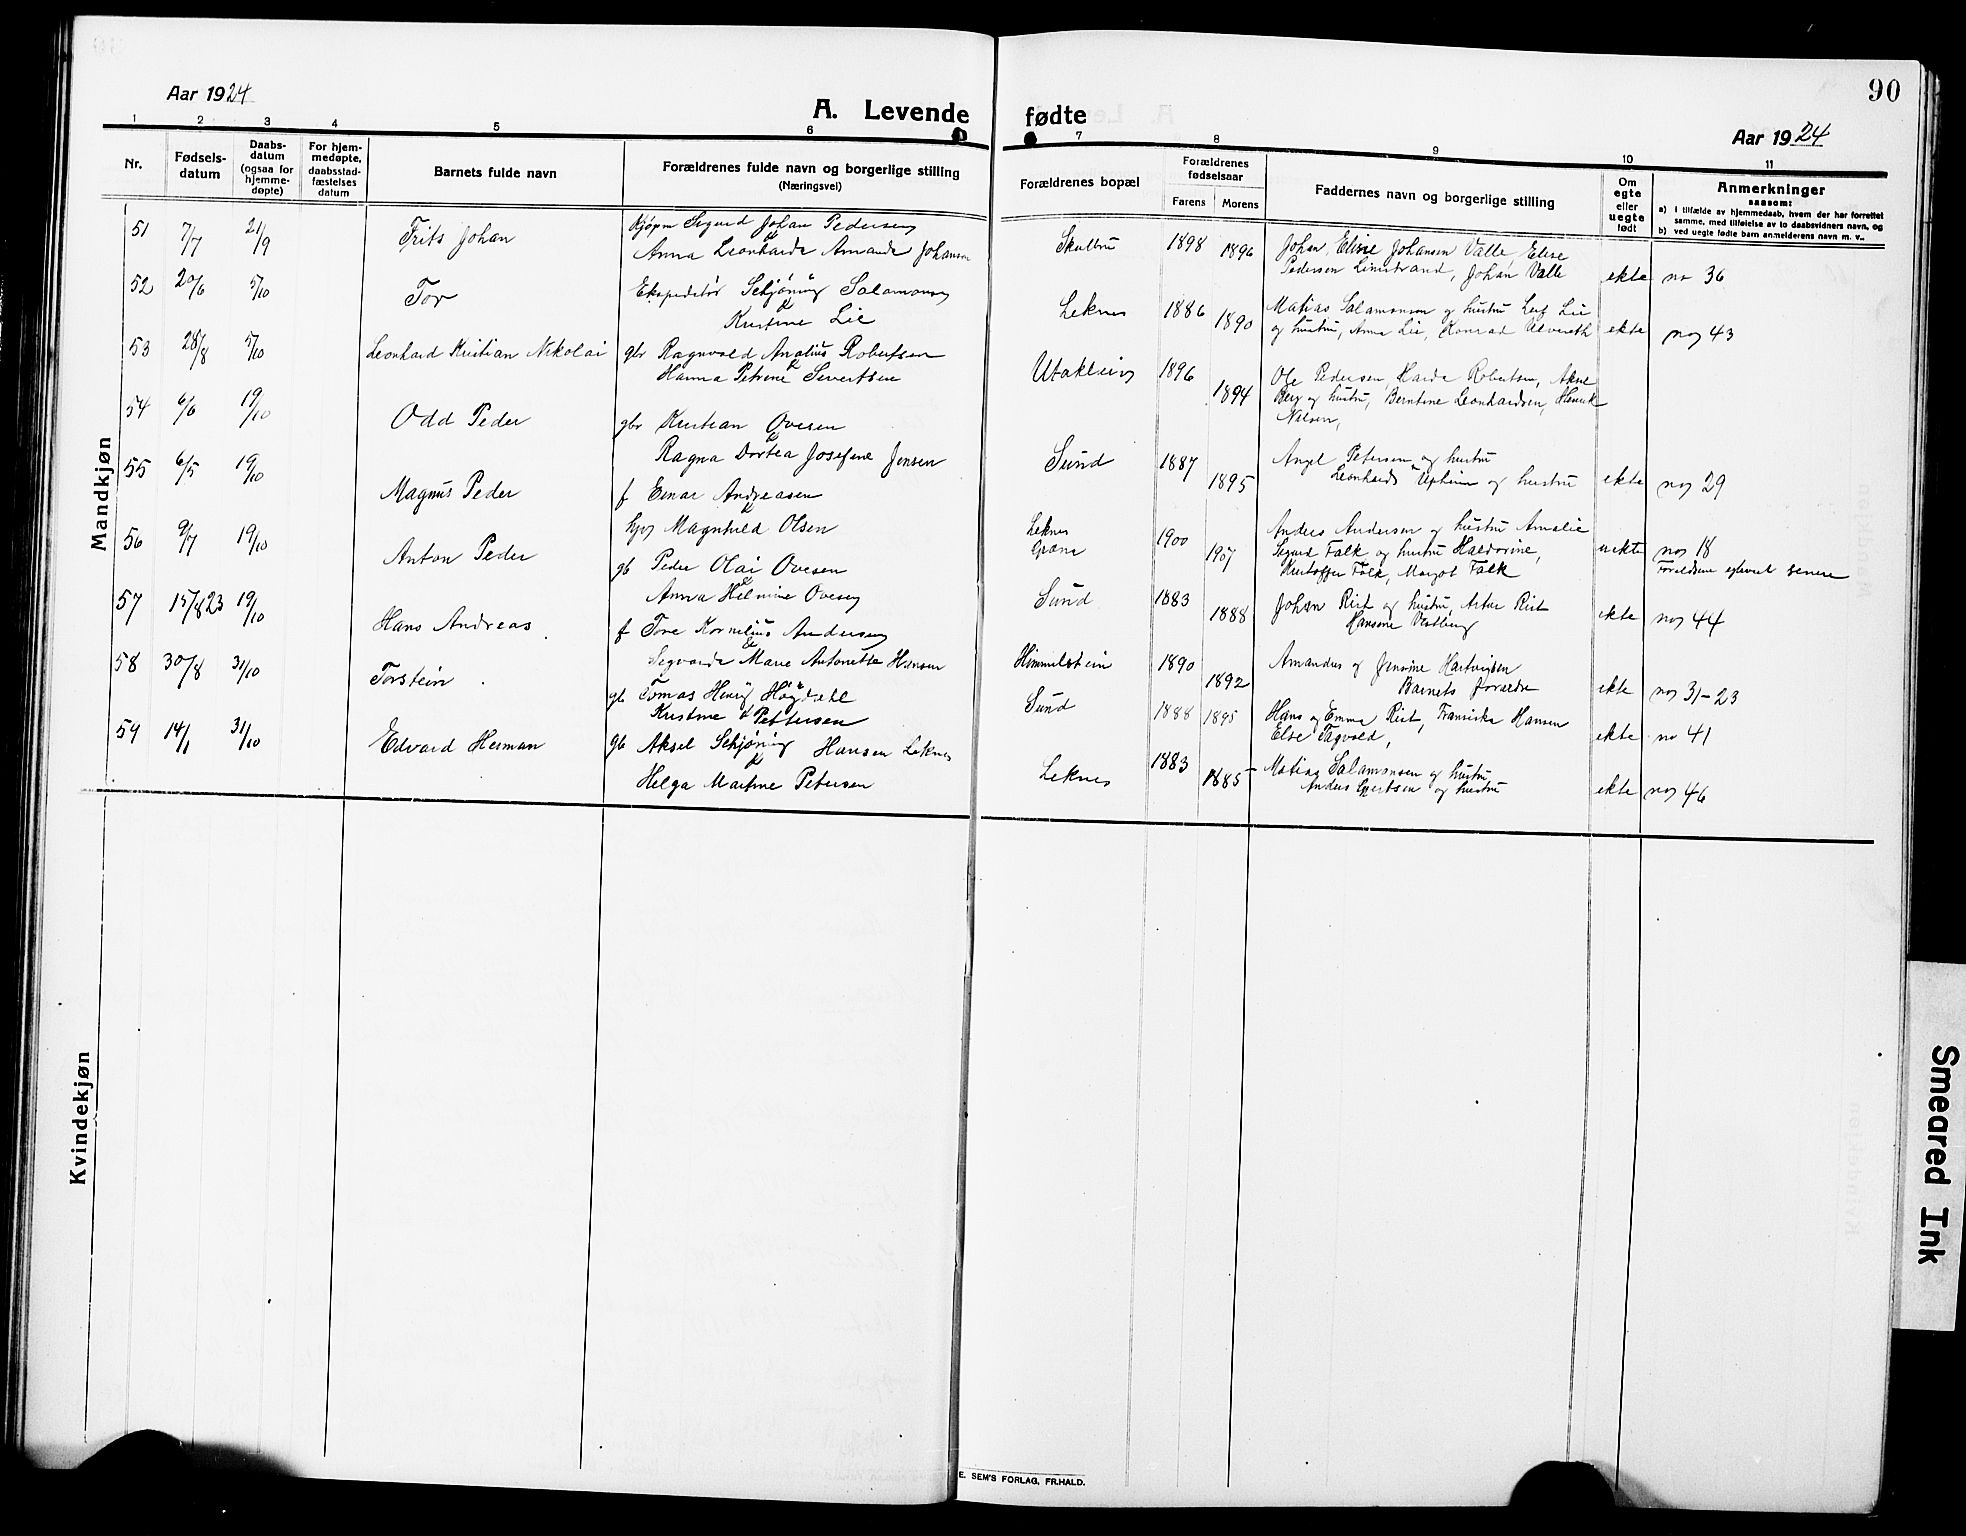 90
Aar 1924
A. Levende
fødte
Aar 1924
1 2 3 4 5 6 7 8 9 10 11
Nr.
Fødsels-
datum
Daabs-
datum
(ogsaa for
hjemme-
døpte)
For hjem-
medøpte,
daabsstad-
fæstelses
datum
Barnets fulde navn
Forældrenes fulde navn og borgerlige stilling
(Næringsvei)
Forældrenes bopæl
Forældrenes
fødselsaar
Farens Morens
Faddernes navn og borgerlige stilling
Om
egte
eller
uegte
født
Anmerkninger
saasom:
a) i tilfælde av hjemmedaab, hvem der har forrettet
samme, med tilføielse av to daabsvidners navn, og
b) ved uegte fødte barn anmelderens navn m. v..
Mandkjøn
51 7/7 21/9 Frits Johan
Sigurd Johan Pedersen
Anna Leonharde Amanda Johansen
1898 1896
Johan, Elise Johansen Valle, Elise
Pedersen Limstrand, Johan Valle
ekte no 36
52 20/6 5/10 Tor
Ekspeditør Schjøning Salamonsen
Kristine Lie
Leknes 1886 1890
Matias Salamonsen og hustru Leif Lie
og hustru, Anna Lie, Konrad
ekte no 43
53 28/8 5/10 Leonhard Kristian Nikolai
gbr Ragnvald Analius Robertsen
Hanna Petrine Sivertsen
Utakleiv 1896 1894
Ole Pedersen, Robertsen,
Berg og hustru, Berntine Leonhardsen, Henrik
Nilsen,
54 6/6 19/10 Odd Peder
gbr Kristian Ovesen
Ragna Dortea Josefine Jensen
Sund 1887 1895
Angel Petersen og hustru
Leonhards og hustru
ekte no 29
55 6/5 19/10 Magnus Peder
f Einar Andreasen
Magnhild Olsen
Leknes
1900 1907
Anders Andersen og hustru Amalie
Sigurd Falk og hustru Haldorine,
Kristoffer Falk, Margot Falk
uekte no 18
senere
56 9/7 19/10 Anton Peder
gb Peder Olai Ovesen
Anna Helmine Ovesen
Sund 1883 1888
Johan Rist og hustru, Artur Rist
Hansine
ekte no 44
57 15/8 23 19/10 Hans Andreas
f Tore Kornelius Andersen
Marie Antonette Hansen
Himmelstein 1890 1892
Amandus og Jensine Hartvigsen
Barnets forældre
ekte no 31-23
58 30/8 31/10 Torstein
gb Tomas Henrij Høgdahl
Kristine Pettersen
Sund 1888 1895
Hans og Emma Rist, Fransiska Hansen
Else Tagvold,
ekte no 41
59 14/1 31/10 Edvard Herman
gb Aksel Schjøning Hansen Leknes
Helga Martine Petersen
Leknes 1883 1885
Matias Salamonsen og hustru
Anders og hustru
ekte no 46
Kvindekjøn
E. SEM'S FORLAG, FR.HALD.
Smeared Ink